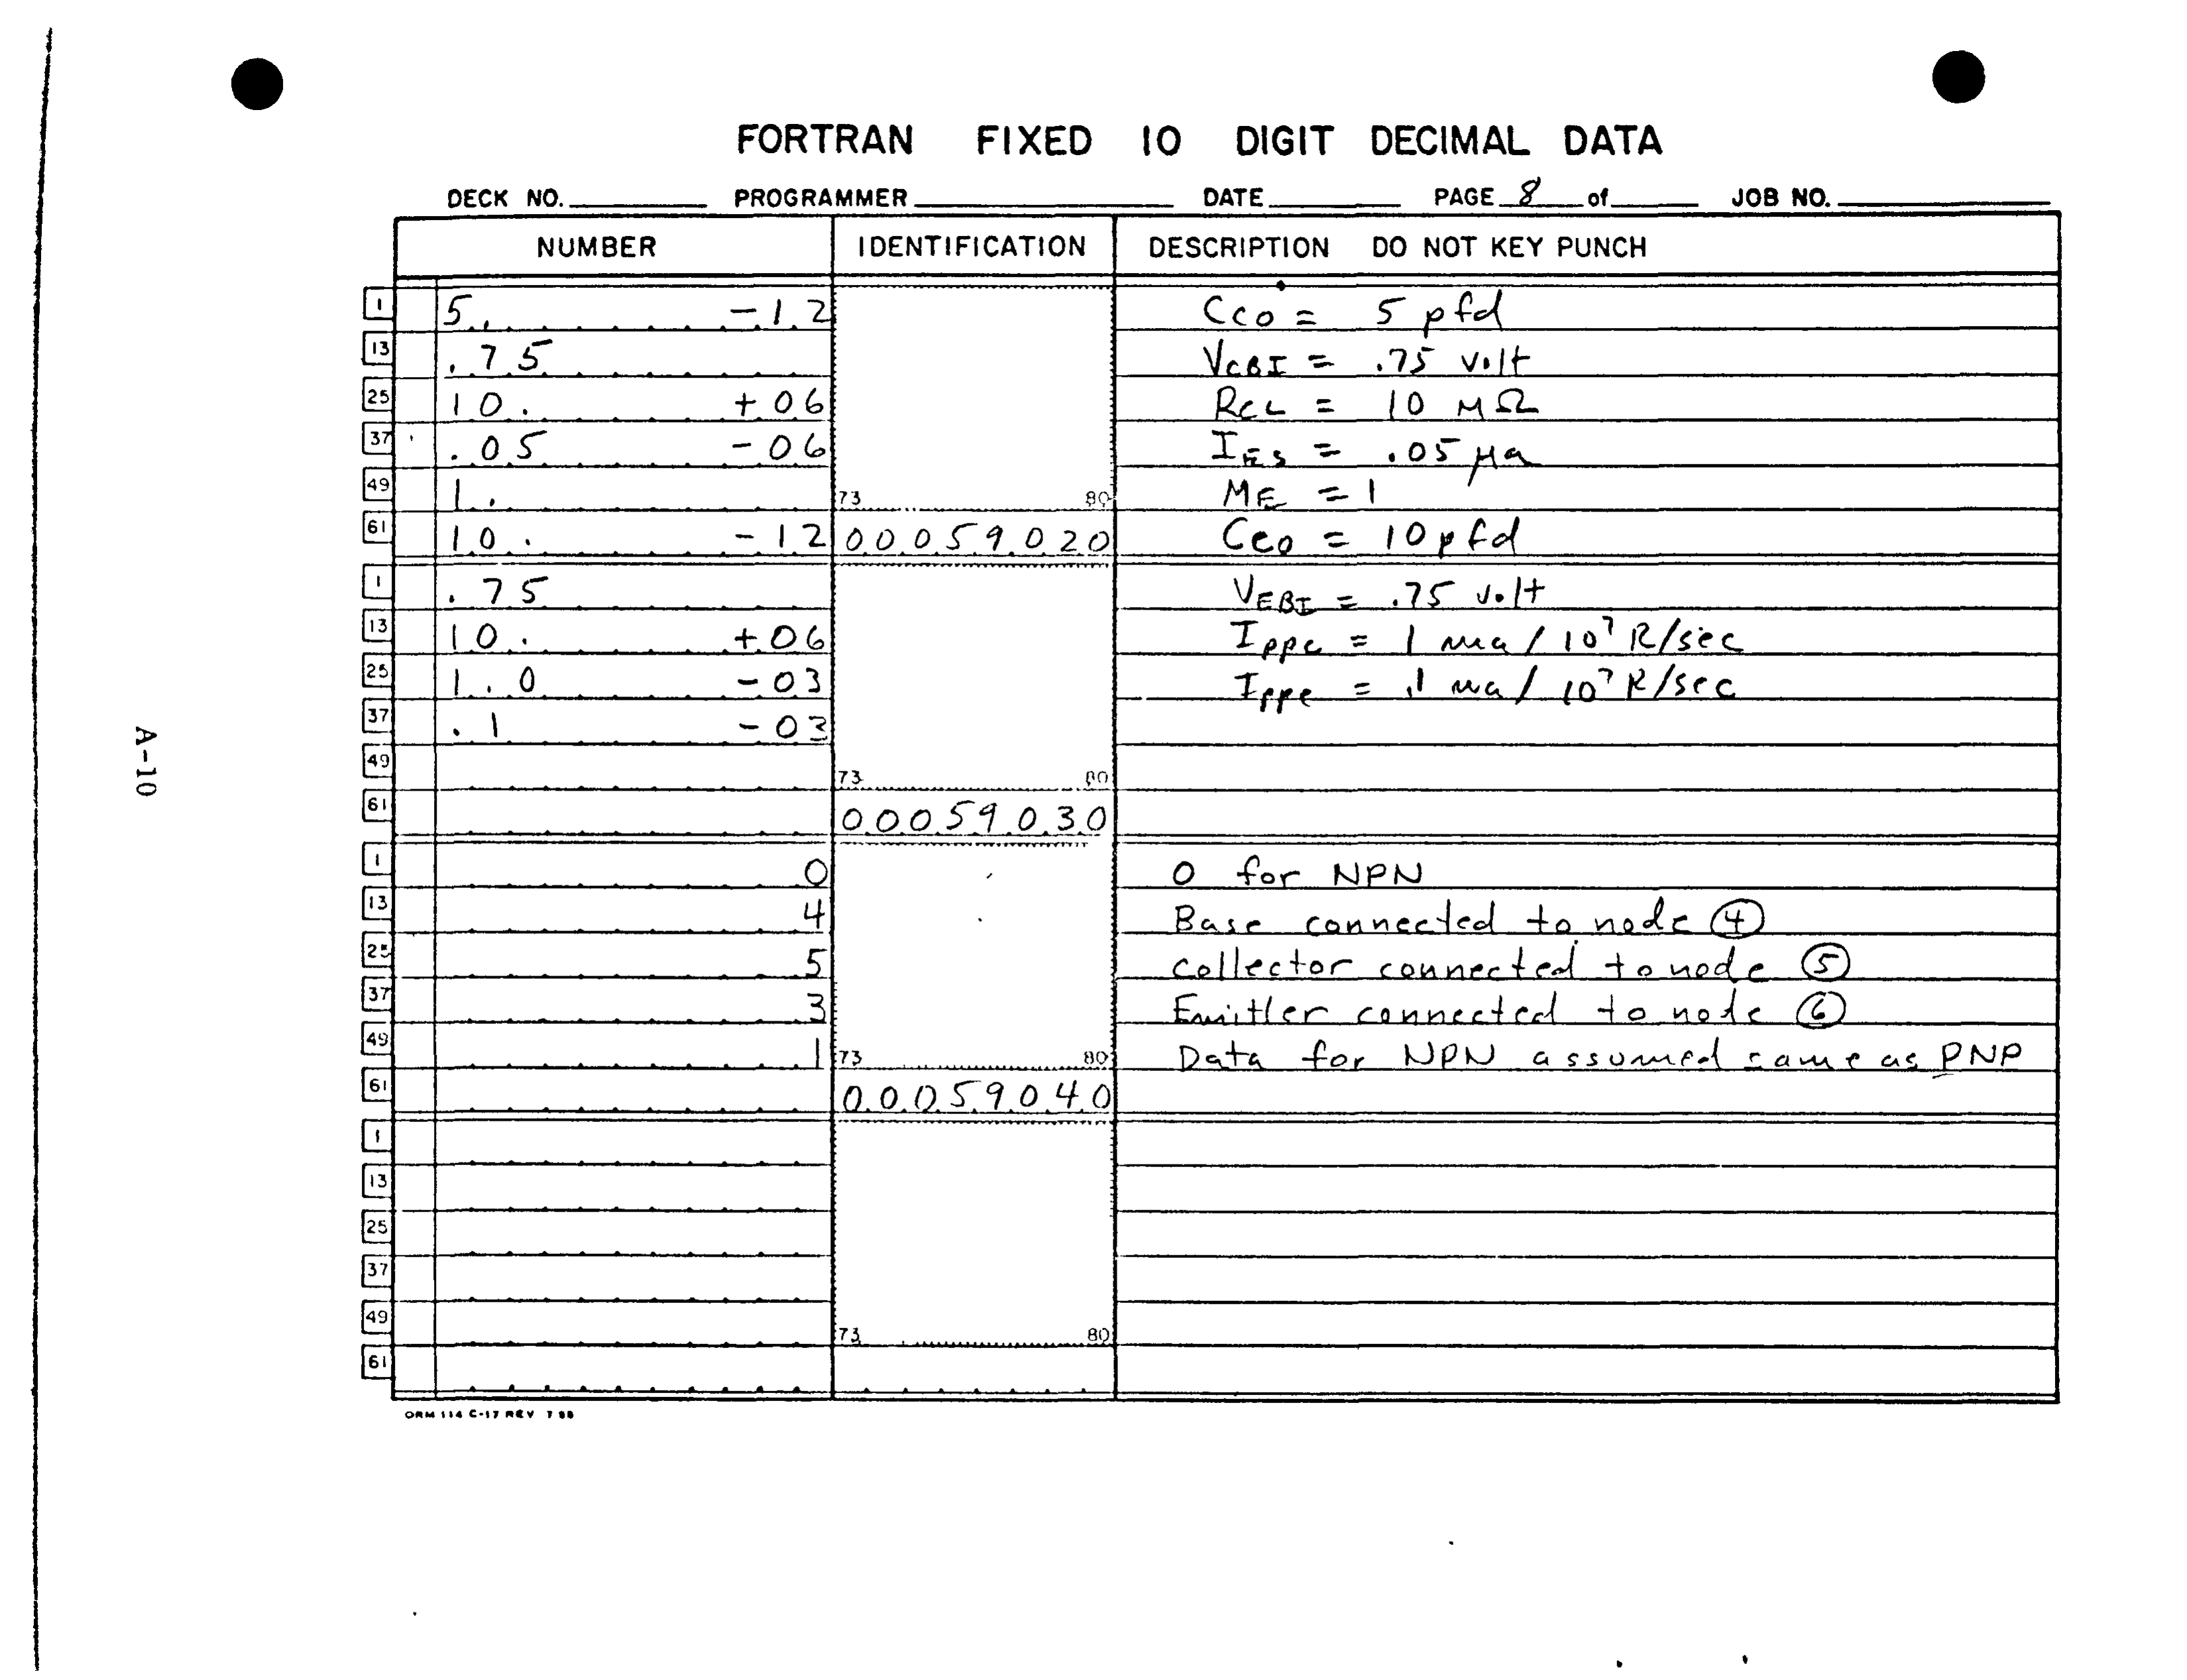 FORTRAN FIXED 10 DIGIT DECIMAL DATA
DECK NO. PROGRAMMER DATE PAGE 8 of JOB NO.
NUMBER IDENTIFICATION DESCRIPTION DO NOT KEY PUNCH
1 5. -12 Cco = 5 pfd
13 .75 VCBI = .75 volt
25 10. +06 RCL = 10 MΩ
37 .05 -06 IES = .05 μa
49 1. 73 80 ME = 1
61 10. -12 00059020 Ceo = 10 pfd
1 .75 VEBI = .75 volt
13 10. +06 Ippc = 1 ma / 10⁷ R/sec
25 1.0 -03 Ippe = .1 ma / 10⁷ R/sec
37 .1 -03
49 73 80
61 00059030
1 0 0 for NPN
13 4 Base connected to node ④
25 5 Collector connected to node ⑤
37 3 Emitter connected to node ⑥
49 1 73 80 Data for NPN assumed same as PNP
61 00059040
1
13
25
37
49 73 80
61
ORM 114 C-17 REV
A-10